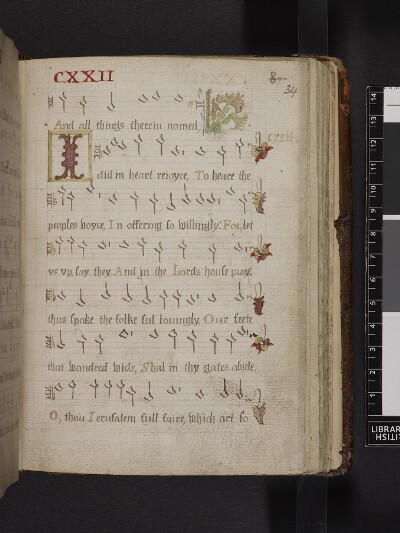 CXXII
8
34
And all things therein named,
cxxii
I did in heart reioyce, To heare the
peoples voyce, In offering so willingly: For let
vs vp, say they And in the Lords house pray.
thus spake the folke ful louingly. Our feete
that wandred wide, Shal in thy gates abide.
O, thou Ierusalem full faire, which art so
14
13
12
11
10
9
8
7
6
5
4
3
2
1
LIBRAR